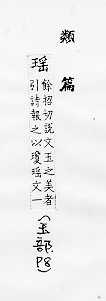 類篇
瑤
餘招切說文玉之美者
引詩報之以瓊瑤文一
(玉部P8)